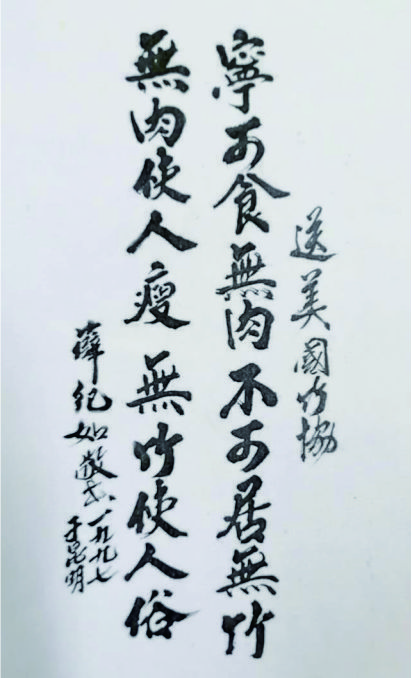 送美國竹協
寧可食無肉不可居無竹
無肉使人瘦無竹使人俗
薛纪如敬书一九九七
于昆明